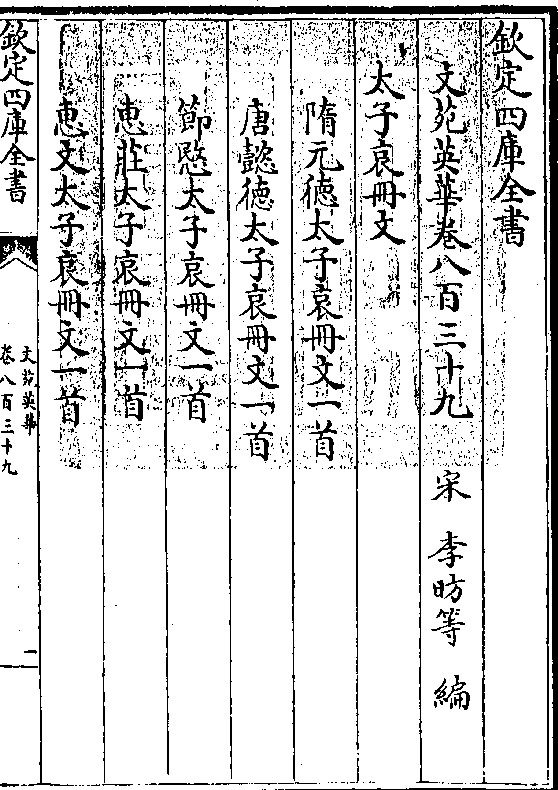 欽定四庫全書
文苑英華卷八百三十九
宋 李昉等 編
太子哀冊文
隋元德太子哀冊文一首
唐懿德太子哀冊文一首
節愍太子哀冊文一首
惠莊太子哀冊文一首
惠文太子哀冊文一首
欽定四庫全書
文苑英華
卷八百三十九
一